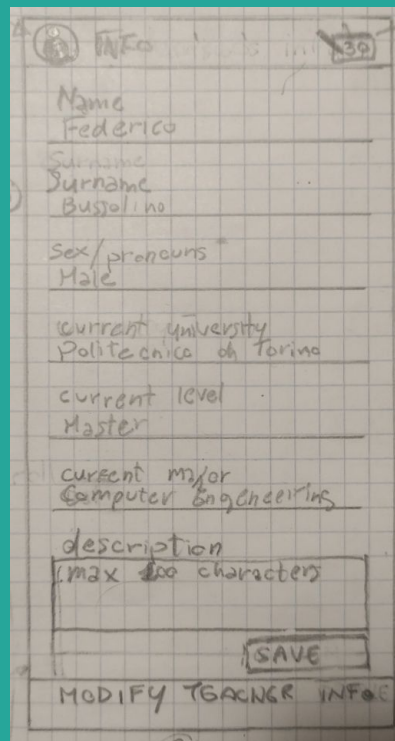 INFO
30
Name
Federico
Surname
Surname
Bussolino
Sex/pronouns
Male
current university
Politecnico di Torino
current level
Master
current major
Computer Engeneering
description
max 100 characters
SAVE
MODIFY TEACHER INFO